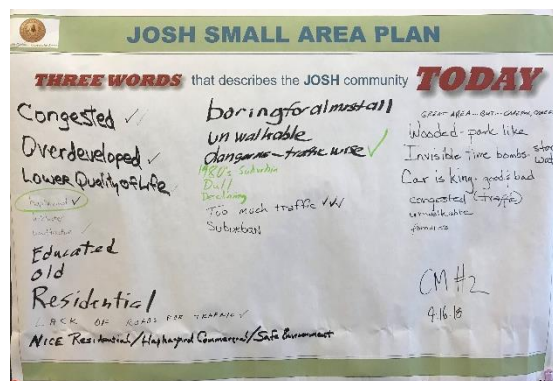 JOSH SMALL AREA PLAN
THREE WORDS that describes the JOSH community TODAY
Congested ✓
Overdeveloped ✓
Lower Quality of Life
haphazard ✓
Educated
old
Residential
LACK OF ROADS FOR TRAFFIC ✓
NICE Residential/Haphazard Commercial/Safe Environment
boring for almost all
unwalkable
dangerous - traffic wise ✓
1980's Suburbia
Dull
Declining
Too much traffic ✓✓✓
Suburban
GREAT AREA -- BUT --
Wooded - park like
Invisible time bombs - storm
Car is king - good & bad
congested (traffic)
unwalkable
CM #2
9.16.18